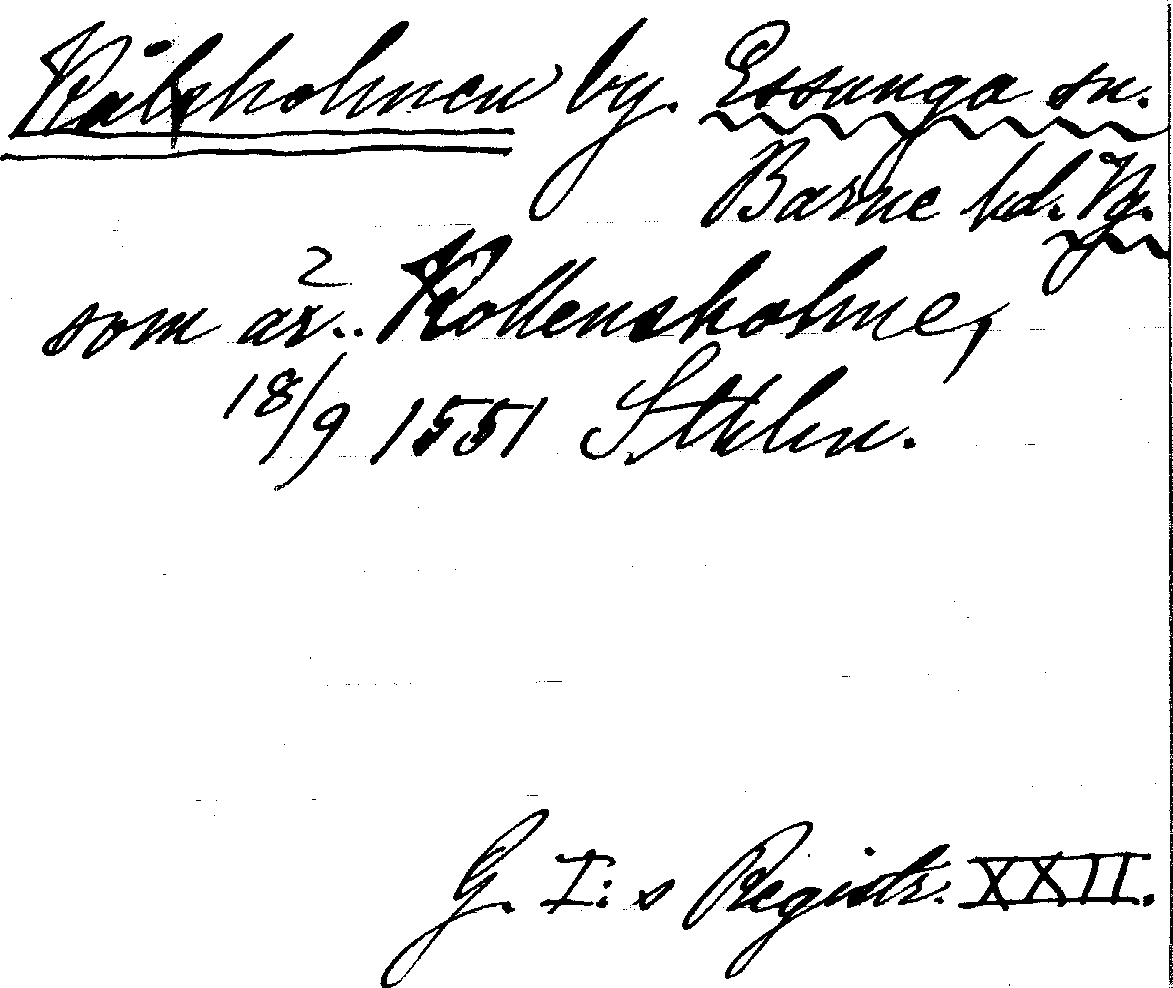 Kålsholmen by. Essunga sn.
Barne hd. Vg.
2
som är.. Kollensholme,
18/9 1551 Sthlm.
G. I:s Registr. XXII.